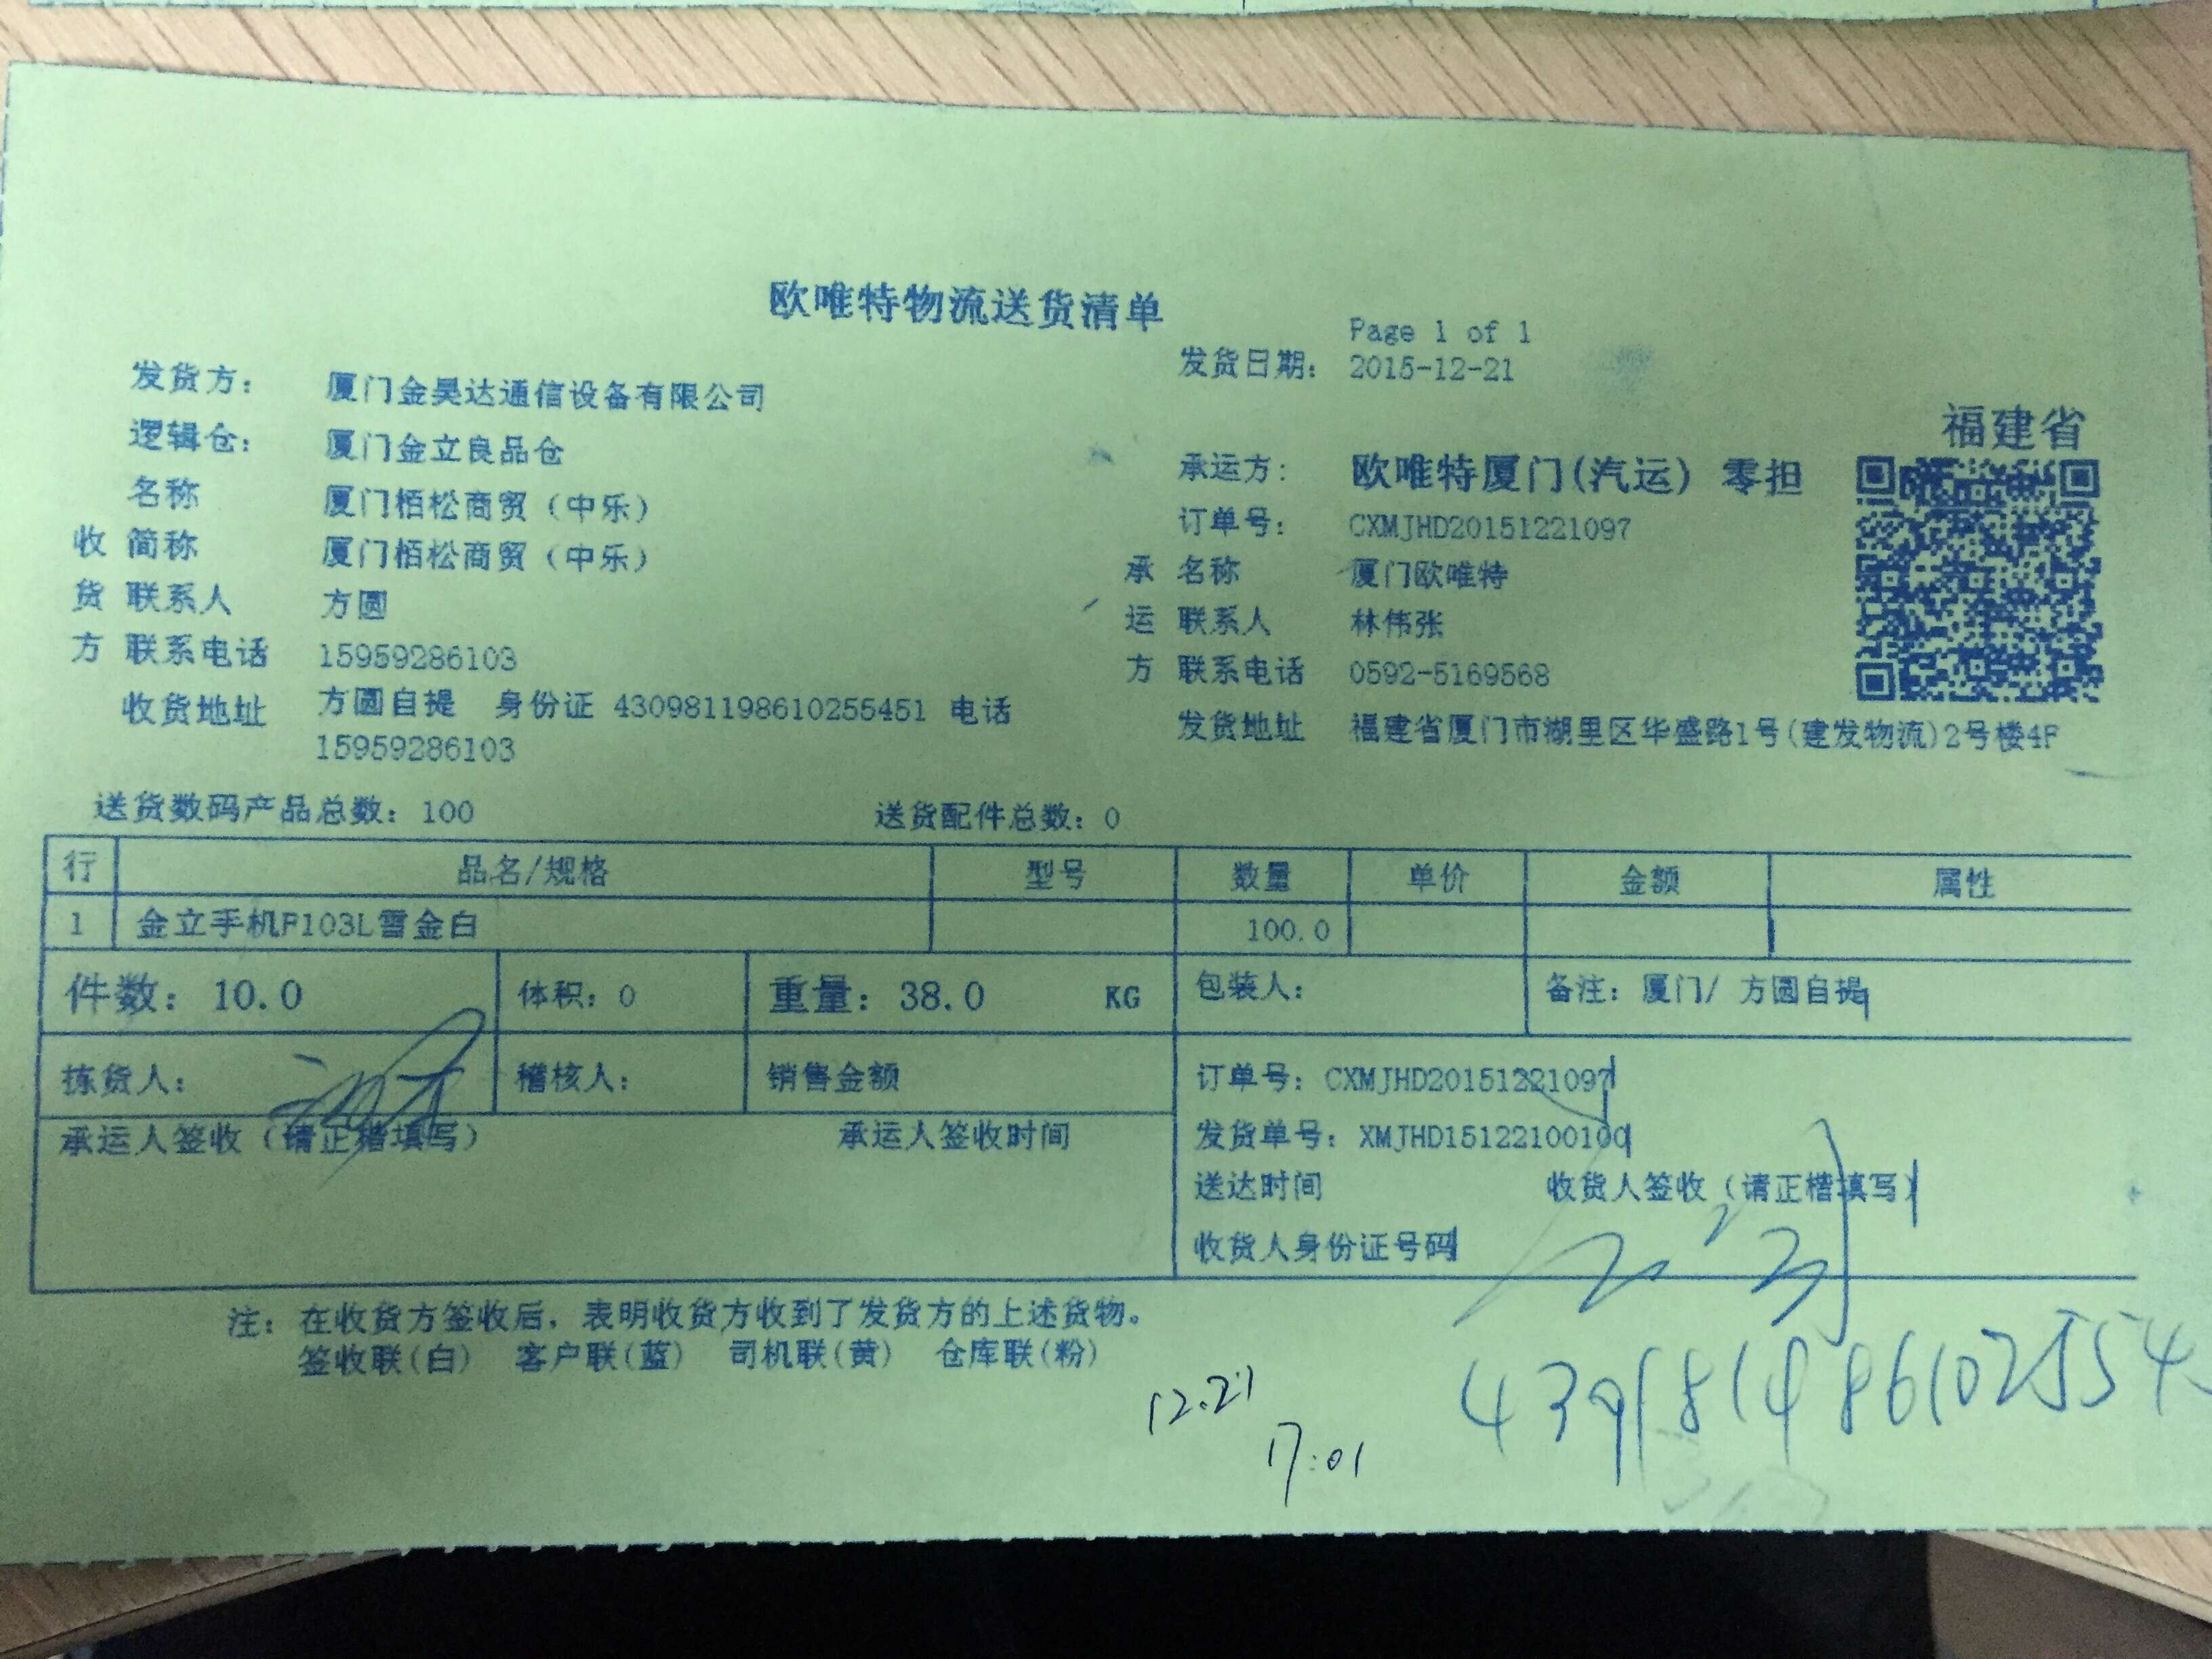 欧唯特物流送货清单
Page 1 of 1
发货日期: 2015-12-21
福建省
发货方: 厦门金昊达通信设备有限公司
逻辑仓: 厦门金立良品仓
承运方: 欧唯特厦门(汽运) 零担
名称 厦门栢松商贸（中乐）
订单号: CXMJHD20151221097
收 简称 厦门栢松商贸（中乐）
承 名称 厦门欧唯特
货 联系人 方圆
运 联系人 林伟张
方 联系电话 15959286103
方 联系电话 0592-5169568
收货地址 方圆自提 身份证 430981198610255451 电话
15959286103
发货地址 福建省厦门市湖里区华盛路1号(建发物流)2号楼4F
送货数码产品总数: 100 送货配件总数: 0
行 品名/规格 型号 数量 单价 金额 属性
1 金立手机F103L雪金白 100.0
件数: 10.0 体积: 0 重量: 38.0 KG 包装人: 备注: 厦门/ 方圆自提
拣货人: 稽核人: 销售金额 订单号: CXMJHD20151221097
承运人签收（请正楷填写） 承运人签收时间 发货单号: XMJHD15122100100
送达时间 收货人签收（请正楷填写）
收货人身份证号码
注: 在收货方签收后, 表明收货方收到了发货方的上述货物。
签收联(白) 客户联(蓝) 司机联(黄) 仓库联(粉)
12.21
17:01